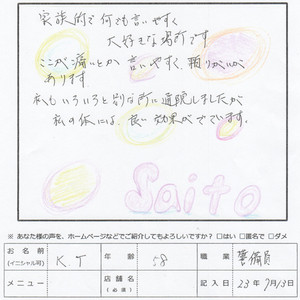 家族的で何でも言いやすく
大好きな場所です
ここが痛いとか言いやすく、頼りがいが
あります
私もいろいろと別な所に通院しましたが
私の体には、良い効果がでています。
Saito
※ あなた様の声を、ホームページなどでご紹介してもよろしいですか? □はい □匿名で □ダメ
お名前 (イニシャル可) K.T 年齢 58 職業 警備員
メニュー 店舗名 (必須) 記入日 23年7月13日